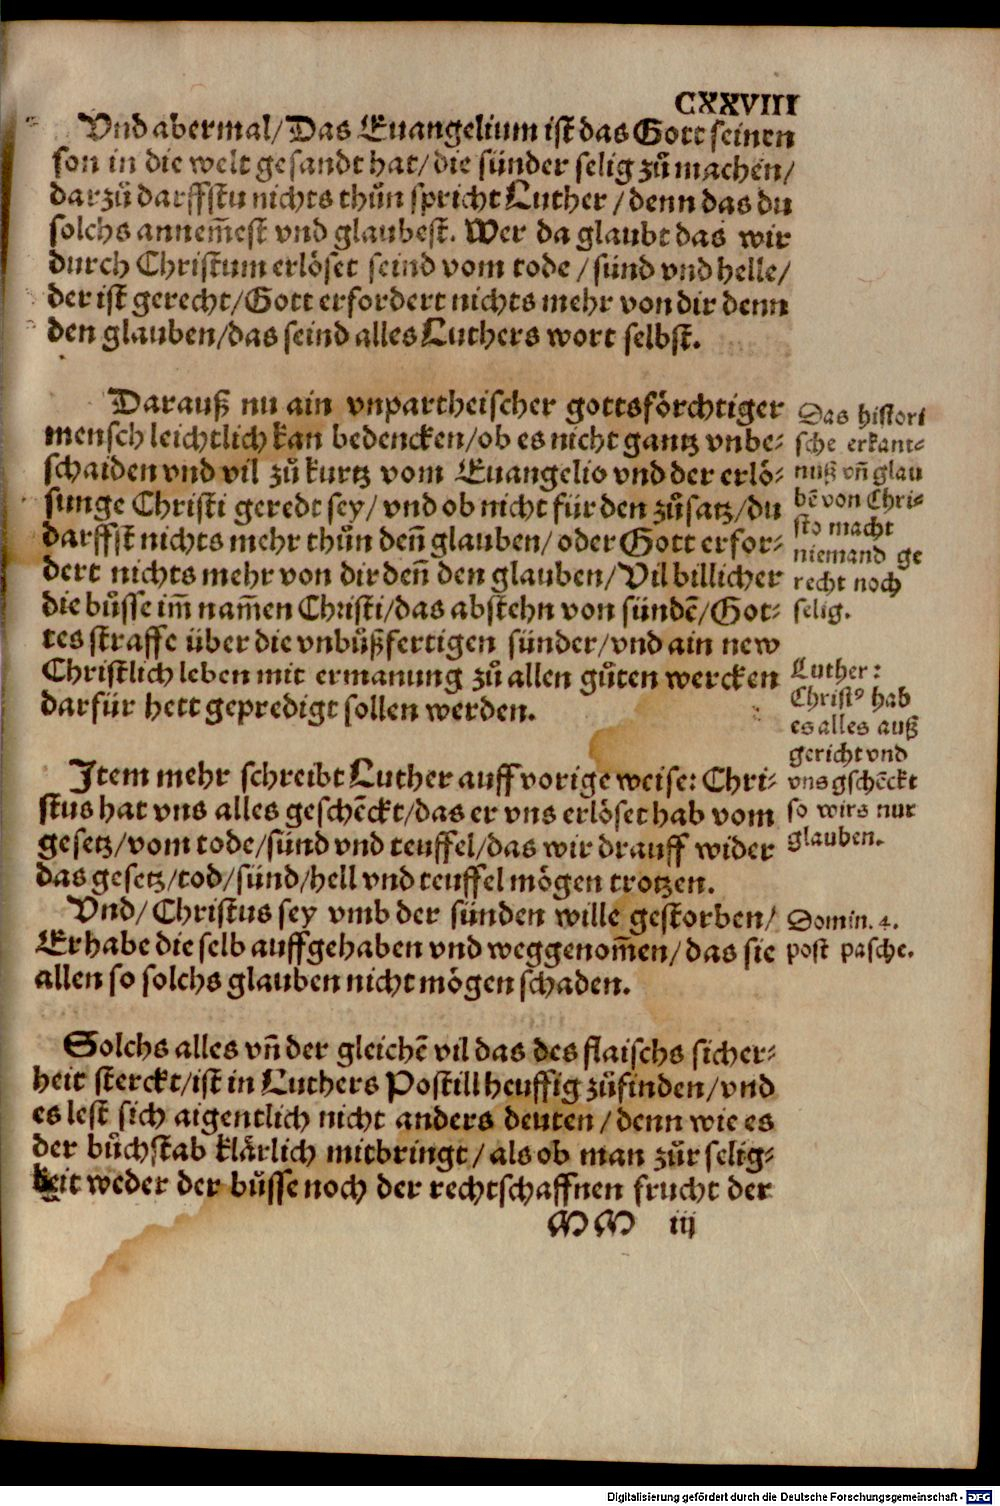 CXXVIII
Vnd abermal/ Das Euangelium ist das Gott seinen
son in die welt gesandt hat/ die sünder selig zů machen/
darzů darffstu nichts thůn spricht Luther / denn das du
solchs annem̃est vnd glaubest. Wer da glaubt das wir
durch Christum erlöset seind vom tode / sünd vnd helle/
der ist gerecht/ Gott erfordert nichts mehr von dir denn
den glauben/ das seind alles Luthers wort selbst.
Darauß nu ain vnpartheischer gottsförchtiger
mensch leichtlich kan bedencken/ ob es nicht gantz vnbe-
schaiden vnd vil zů kurtz vom Euangelio vnd der erlö-
sunge Christi geredt sey/ vnd ob nicht für den zůsatz/ du
darffst nichts mehr thůn deñ glauben/ oder Gott erfor-
dert nichts mehr von dir deñ den glauben/ Vil billicher
die bůsse im̃ nam̃en Christi/ das abstehn von sündẽ/ Got-
tes straffe über die vnbůßfertigen sünder/ vnd ain new
Christlich leben mit ermanung zů allen gůten wercken
darfür hett gepredigt sollen werden.
Das histori
sche erkant-
nuß vñ glau
bẽ von Chri-
sto macht
niemand ge
recht noch
selig.
Luther:
Christꝰ hab
es alles auß
gericht vnd
vns gschẽckt
so wirs nur
glauben.
Item mehr schreibt Luther auff vorige weise: Chri-
stus hat vns alles geschẽckt/ das er vns erlöset hab vom
gesetz/ vom tode/ sünd vnd teuffel/ das wir drauff wider
das gesetz/ tod/ sünd/ hell vnd teuffel mögen trotzen.
Vnd/ Christus sey vmb der sünden wille gestorben/
Er habe die selb auffgehaben vnd weggenom̃en/ das sie
allen so solchs glauben nicht mögen schaden.
Domin. 4.
post pasche.
Solchs alles vñ der gleichẽ vil das des flaischs sicher-
heit sterckt/ ist in Luthers Postill heuffig zůfinden/ vnd
es lest sich aigentlich nicht anders deuten / denn wie es
der bůchstab klärlich mitbringt / als ob man zůr selig-
keit weder der bůsse noch der rechtschaffnen frucht der
MM iij
Digitalisierung gefördert durch die Deutsche Forschungsgemeinschaft - DFG